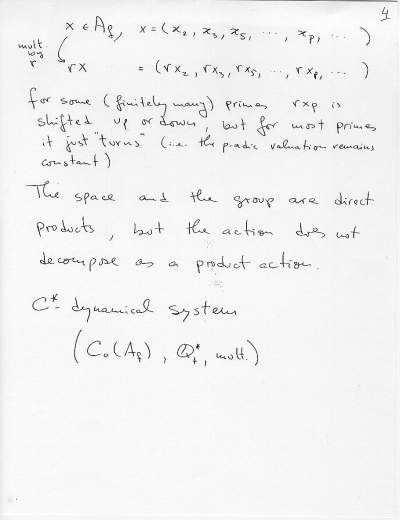 4
x ∈ A_f, x = (x_2, x_3, x_5, ⋯, x_p, ⋯ )
mult. by r
rx = (rx_2, rx_3, rx_5, ⋯, rx_p, ⋯ )
for some (finitely many) primes rx_p is
shifted up or down, but for most primes
it just "turns" (i.e. the p-adic valuation remains
constant)
The space and the group are direct
products, but the action does not
decompose as a product action.
C*-dynamical system
(C_0(A_f), Q_+^*, mult.)